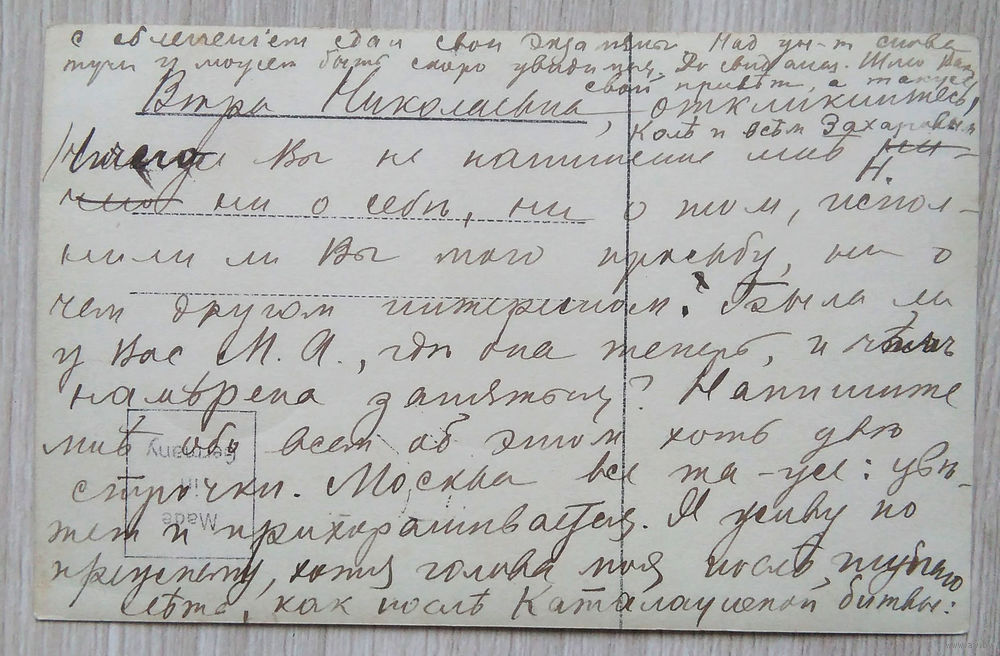 с облегченіем сдал свои экзамены. Над ун-т снова
тучи и может быть скоро увидимся. До свиданія. Шлю Вам
свой привѣт, а также
Вѣра Николаевна, откликнитесь!
Колѣ и всѣм Захаровым
Чего Вы не напишете мнѣ ни-
Н.
чего ни о себѣ, ни о том, испол-
нили ли Вы мою просьбу, ни о
чем другом интересном? Была ли
у Вас М. А., гдѣ она теперь, и чѣм
намѣрена заняться? Напишите
мнѣ обо всем об этом хоть двѣ
строчки. Москва все та-же: цвѣ-
тет и прихорашивается. Я живу по
прежнему, хотя голова моя послѣ
лѣта, как послѣ Каталаунской битвы:
Made
in
Germany